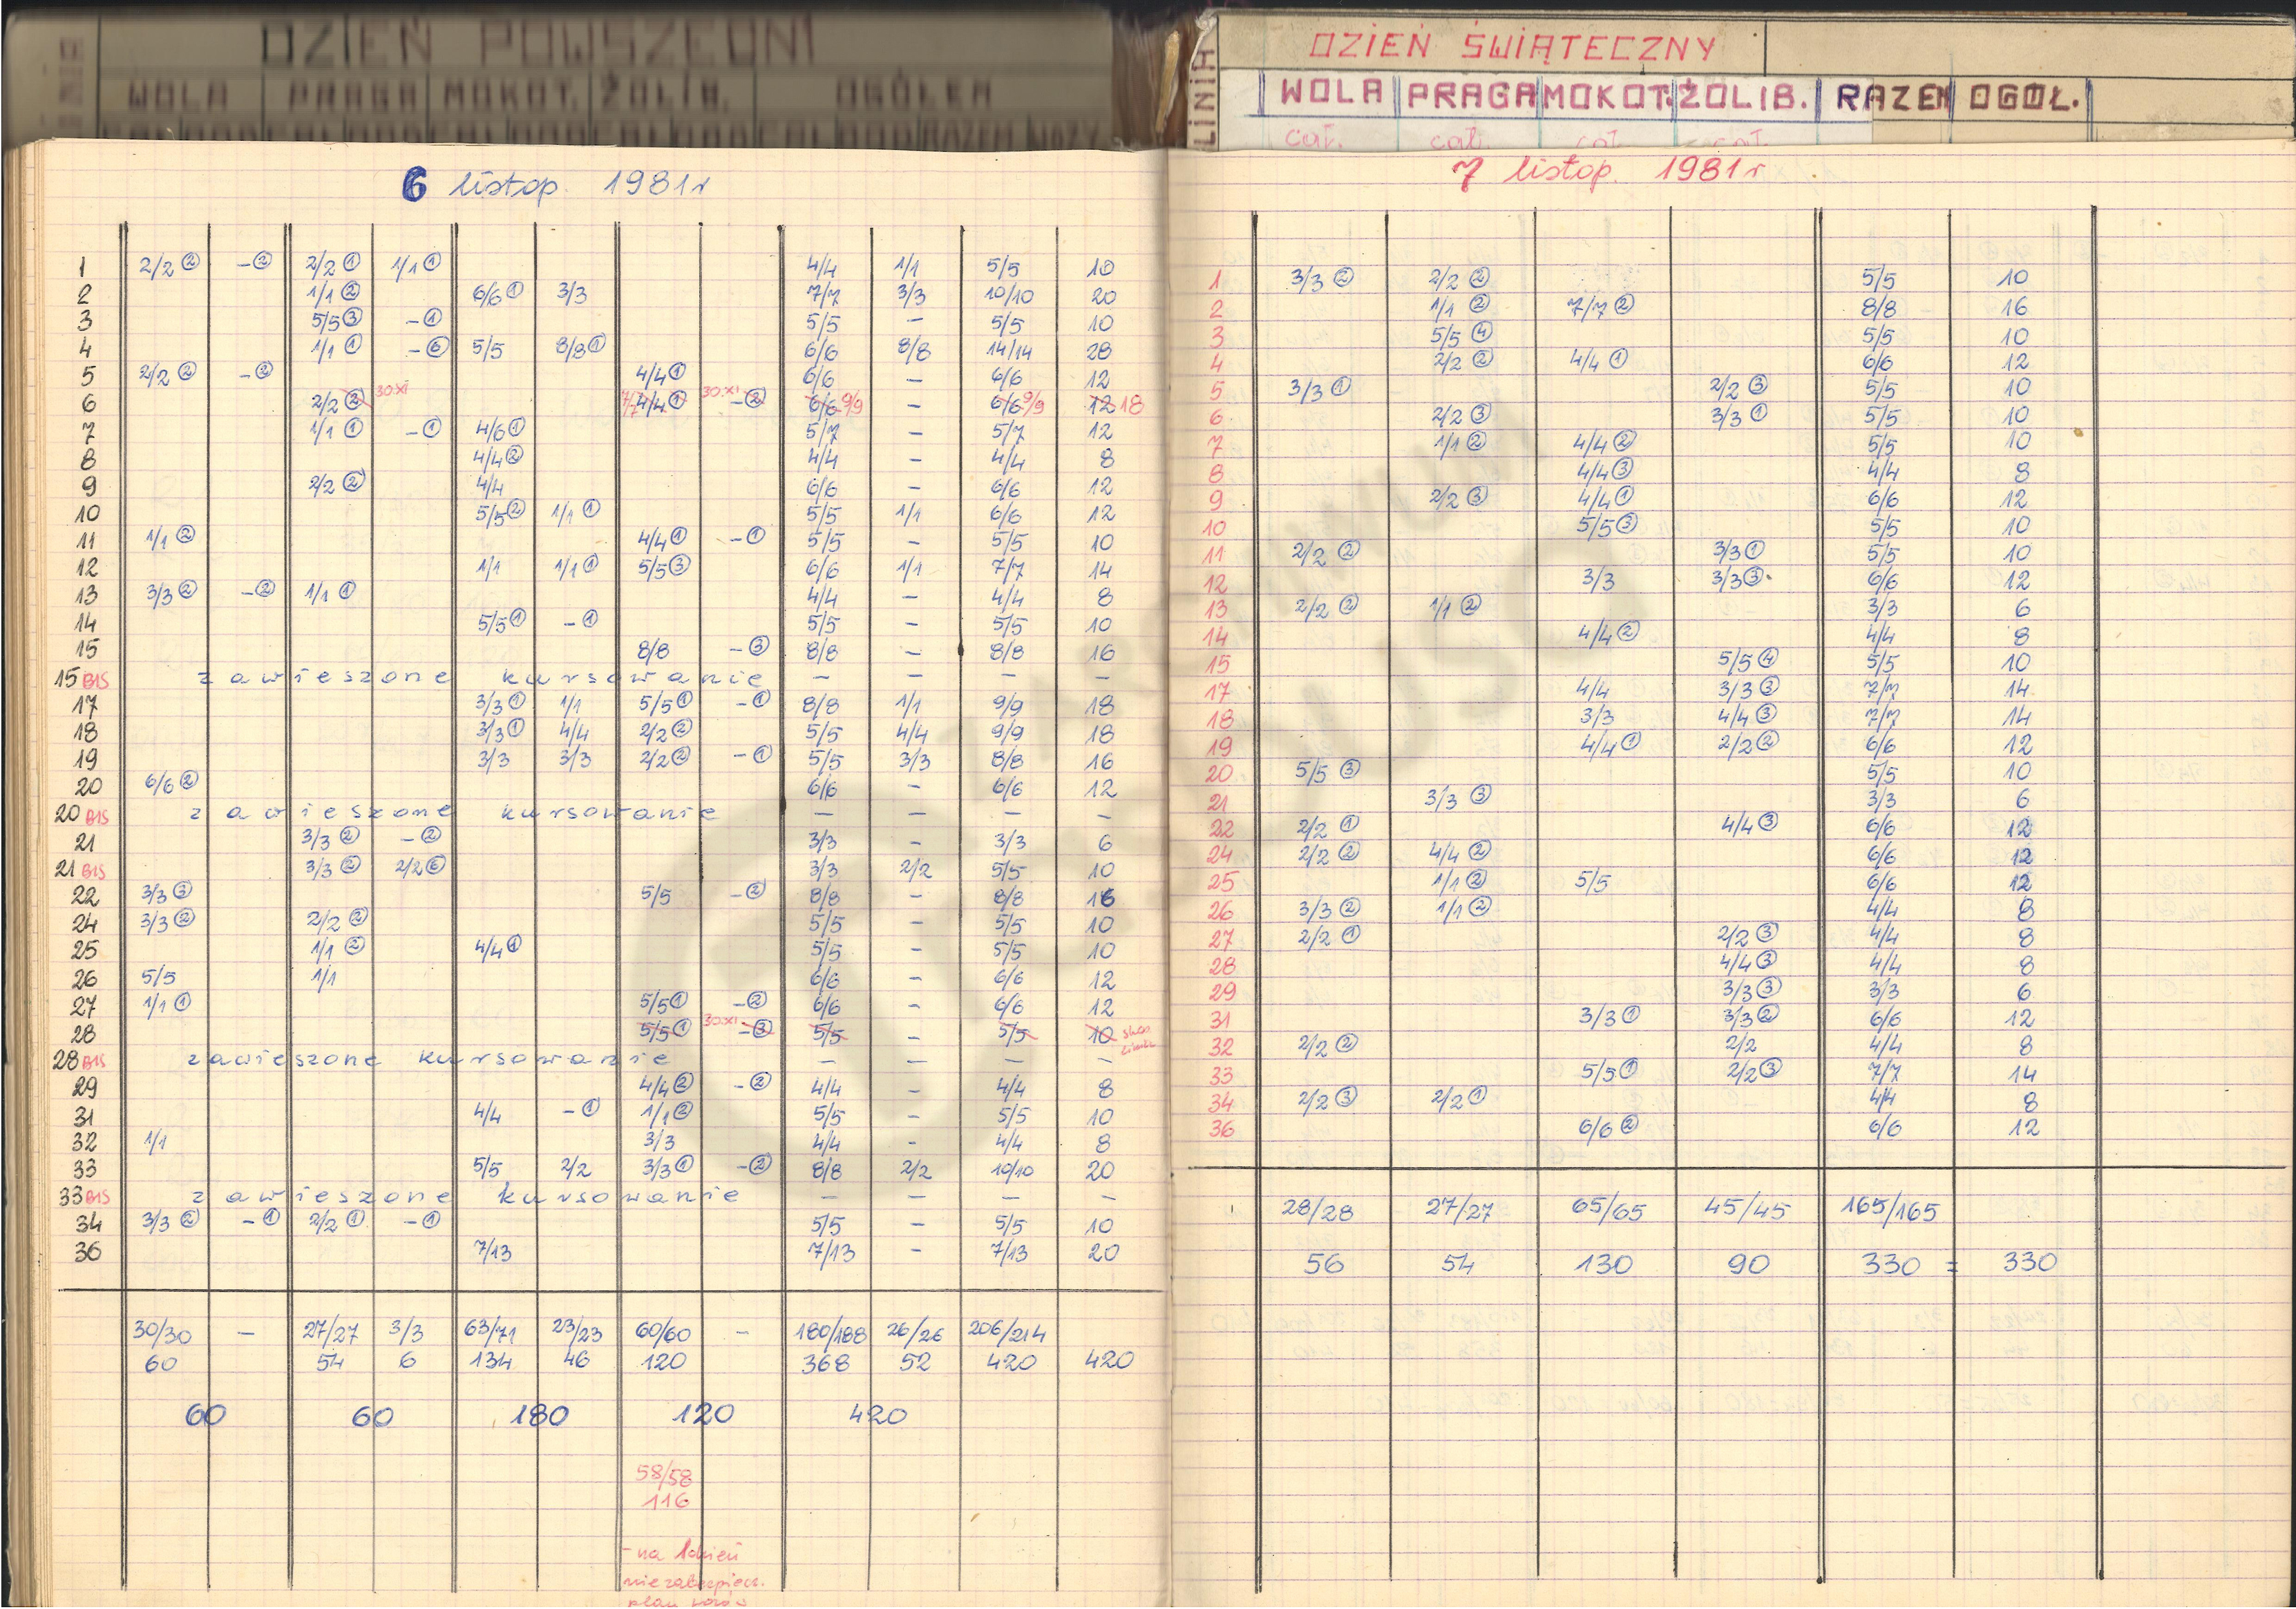 DZIEŃ POWSZEDNI
WOLA PRAGA MOKOT. ŻOLIB. OGÓŁEM
6 listop. 1981r
1 2/2 ② -② 2/2 ① 1/1 ① 4/4 1/1 5/5 10
2 1/1 ② 6/6 ① 3/3 7/7 3/3 10/10 20
3 5/5 ③ -① 5/5 - 5/5 10
4 1/1 ① -⑥ 5/5 8/8 ① 6/6 8/8 14/14 28
5 2/2 ② -② 4/4 ① 6/6 - 6/6 12
6 2/2 ② 30.XI 7/7 4/4 ① 30.XI -② 6/6 9/9 - 6/6 9/9 12 18
7 1/1 ① -① 4/6 ① 5/7 - 5/7 12
8 4/4 ② 4/4 - 4/4 8
9 2/2 ② 4/4 6/6 - 6/6 12
10 5/5 ② 1/1 ① 5/5 1/1 6/6 12
11 1/1 ② 4/4 ① -① 5/5 - 5/5 10
12 1/1 1/1 ① 5/5 ③ 6/6 1/1 7/7 14
13 3/3 ② -② 1/1 ① 4/4 - 4/4 8
14 5/5 ① -① 5/5 - 5/5 10
15 8/8 -③ 8/8 - 8/8 16
15 BIS zawieszone kursowanie - - - -
17 3/3 ① 1/1 5/5 ① -① 8/8 1/1 9/9 18
18 3/3 ① 4/4 2/2 ② 5/5 4/4 9/9 18
19 3/3 3/3 2/2 ② -① 5/5 3/3 8/8 16
20 6/6 ② 6/6 - 6/6 12
20 BIS zawieszone kursowanie - - - -
21 3/3 ② -② 3/3 - 3/3 6
21 BIS 3/3 ② 2/2 ⑥ 3/3 2/2 5/5 10
22 3/3 ③ 5/5 -② 8/8 - 8/8 16
24 3/3 ② 2/2 ② 5/5 - 5/5 10
25 1/1 ② 4/4 ① 5/5 - 5/5 10
26 5/5 1/1 6/6 - 6/6 12
27 1/1 ① 5/5 ① -② 6/6 - 6/6 12
28 5/5 ① 30.XI -③ 5/5 - 5/5 10
28 BIS zawieszone kursowanie - - - -
29 4/4 ② -② 4/4 - 4/4 8
31 4/4 -① 1/1 ② 5/5 - 5/5 10
32 1/1 3/3 4/4 - 4/4 8
33 5/5 2/2 3/3 ① -② 8/8 2/2 10/10 20
33 BIS zawieszone kursowanie - - - -
34 3/3 ② -① 2/2 ① -① 5/5 - 5/5 10
36 7/13 7/13 - 7/13 20
30/30 - 27/27 3/3 63/71 23/23 60/60 - 180/188 26/26 206/214
60 54 6 134 46 120 368 52 420 420
60 60 180 120 420
58/58
116
- na 1 dzień
niezabezpiecz.
plan
LINIA
DZIEŃ ŚWIĄTECZNY
WOLA PRAGA MOKOT. ŻOLIB. RAZEM OGÓŁ.
cał. cał. cał. cał.
7 listop. 1981r
1 3/3 ② 2/2 ② 5/5 10
2 1/1 ② 7/7 ② 8/8 16
3 5/5 ④ 5/5 10
4 2/2 ② 4/4 ① 6/6 12
5 3/3 ① 2/2 ③ 5/5 10
6 2/2 ③ 3/3 ① 5/5 10
7 1/1 ② 4/4 ② 5/5 10
8 4/4 ③ 4/4 8
9 2/2 ③ 4/4 ① 6/6 12
10 5/5 ③ 5/5 10
11 2/2 ② 3/3 ① 5/5 10
12 3/3 3/3 ③ 6/6 12
13 2/2 ② 1/1 ② 3/3 6
14 4/4 ② 4/4 8
15 5/5 ④ 5/5 10
17 4/4 3/3 ③ 7/7 14
18 3/3 4/4 ③ 7/7 14
19 4/4 ① 2/2 ② 6/6 12
20 5/5 ③ 5/5 10
21 3/3 ③ 3/3 6
22 2/2 ① 4/4 ③ 6/6 12
24 2/2 ② 4/4 ② 6/6 12
25 1/1 ② 5/5 6/6 12
26 3/3 ② 1/1 ② 4/4 8
27 2/2 ① 2/2 ③ 4/4 8
28 4/4 ③ 4/4 8
29 3/3 ③ 3/3 6
31 3/3 ① 3/3 ② 6/6 12
32 2/2 ② 2/2 4/4 8
33 5/5 ① 2/2 ③ 7/7 14
34 2/2 ③ 2/2 ① 4/4 8
36 6/6 ② 6/6 12
28/28 27/27 65/65 45/45 165/165
56 54 130 90 330 = 330